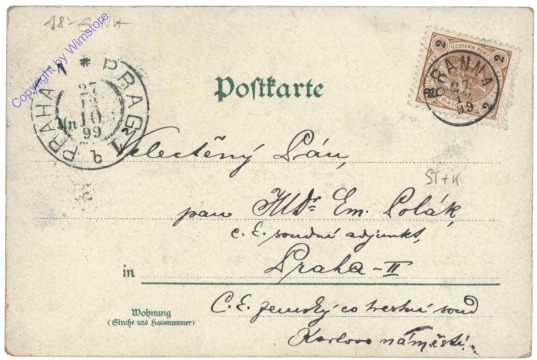 Copyright by Wimstore
PRAHA 1 * PRAG 1
27
10
99
Postkarte
2 2
BRANNA
27
99
2 2
Velectěný Pán,
pan MDr Em. Polák,
ST+K
c. k. soudní adjunkt,
in Praha-II
Wohnung
(Straße und Hausnummer)
C. k. zemský co trestní soud
Karlovo náměstí.